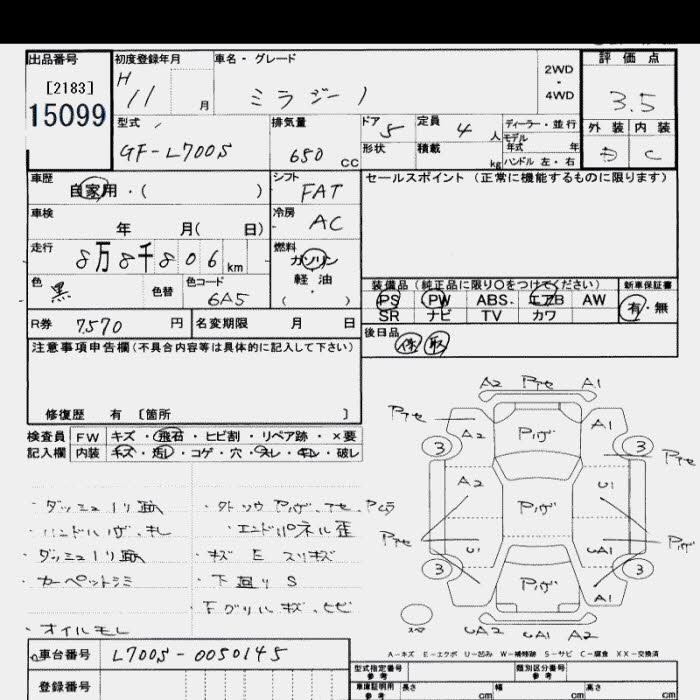 出品番号
[2183]
15099
初度登録年月
H
11 月
車名・グレード
ミラジーノ
2WD
・
4WD
評価点
3.5
外装 内装
D C
型式
GF-L700S
排気量
650 cc
ドア 5
定員 4 人
ディーラー・並行
モデル
年式 年
形状
積載 kg
ハンドル 左・右
車歴
自家用・( )
シフト
FAT
セールスポイント (正常に機能するものに限ります)
車検
年 月( 日)
冷房
AC
走行
8万8千806km
燃料
ガソリン
軽油
( )
色
黒
色替
色コード
6A5
装備品 (純正品に限り○をつけてください)
新車保証書
PS PW ABS エアB AW
SR ナビ TV カワ
有・無
R券 7,570 円
名変期限 月 日
後日品
保 取
注意事項申告欄(不具合内容等は具体的に記入して下さい)
修復歴 有 [箇所 ]
検査員 FW キズ・飛石・ヒビ割・リペア跡・×要
記入欄 内装 キズ・汚レ・コゲ・穴・スレ・キレ・破レ
・カーペットシミ
・オイルモレ
・エンドパネル歪
・キズ E スリキズ
・下廻り S
A2 A1
A2 A1
3 3
A2 U1
U1 UA1
3 3
A1
UA2 UA1 A2
A-キズ E-エクボ U-凹み W-補修跡 S-サビ C-腐食 XX-交換済
車台番号 L700S-0050145
登録番号
型式指定番号
参考
類別区分番号
参考
車庫証明用
参考
長さ cm
幅 cm
高さ cm